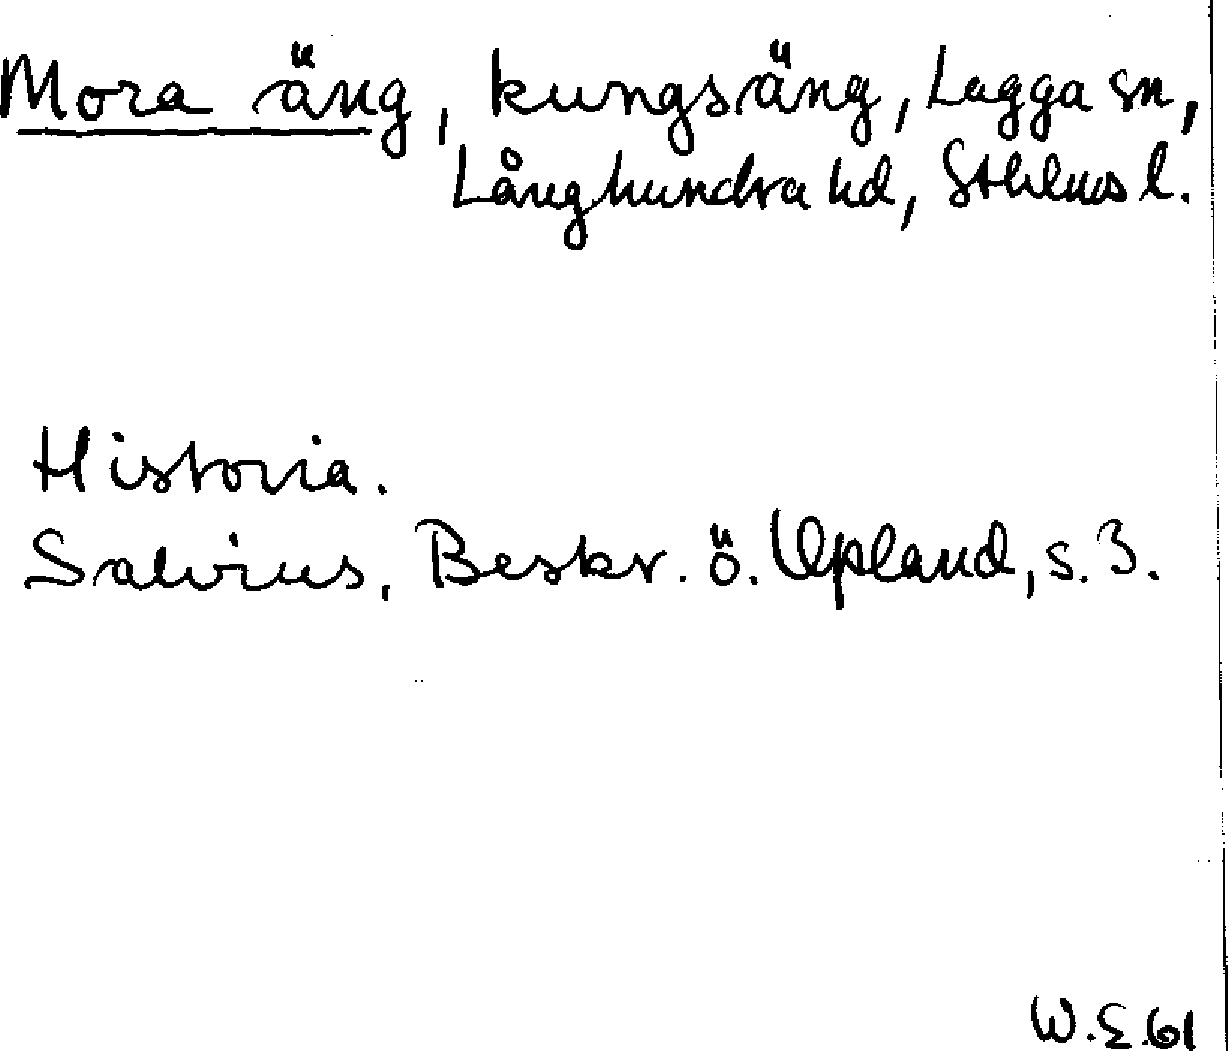 Mora äng, kungsäng, Lagga sn,
Långhundra hd, Sthlms l.
Historia.
Salvius, Beskr. ö. Upland, s. 3.
W.E.61